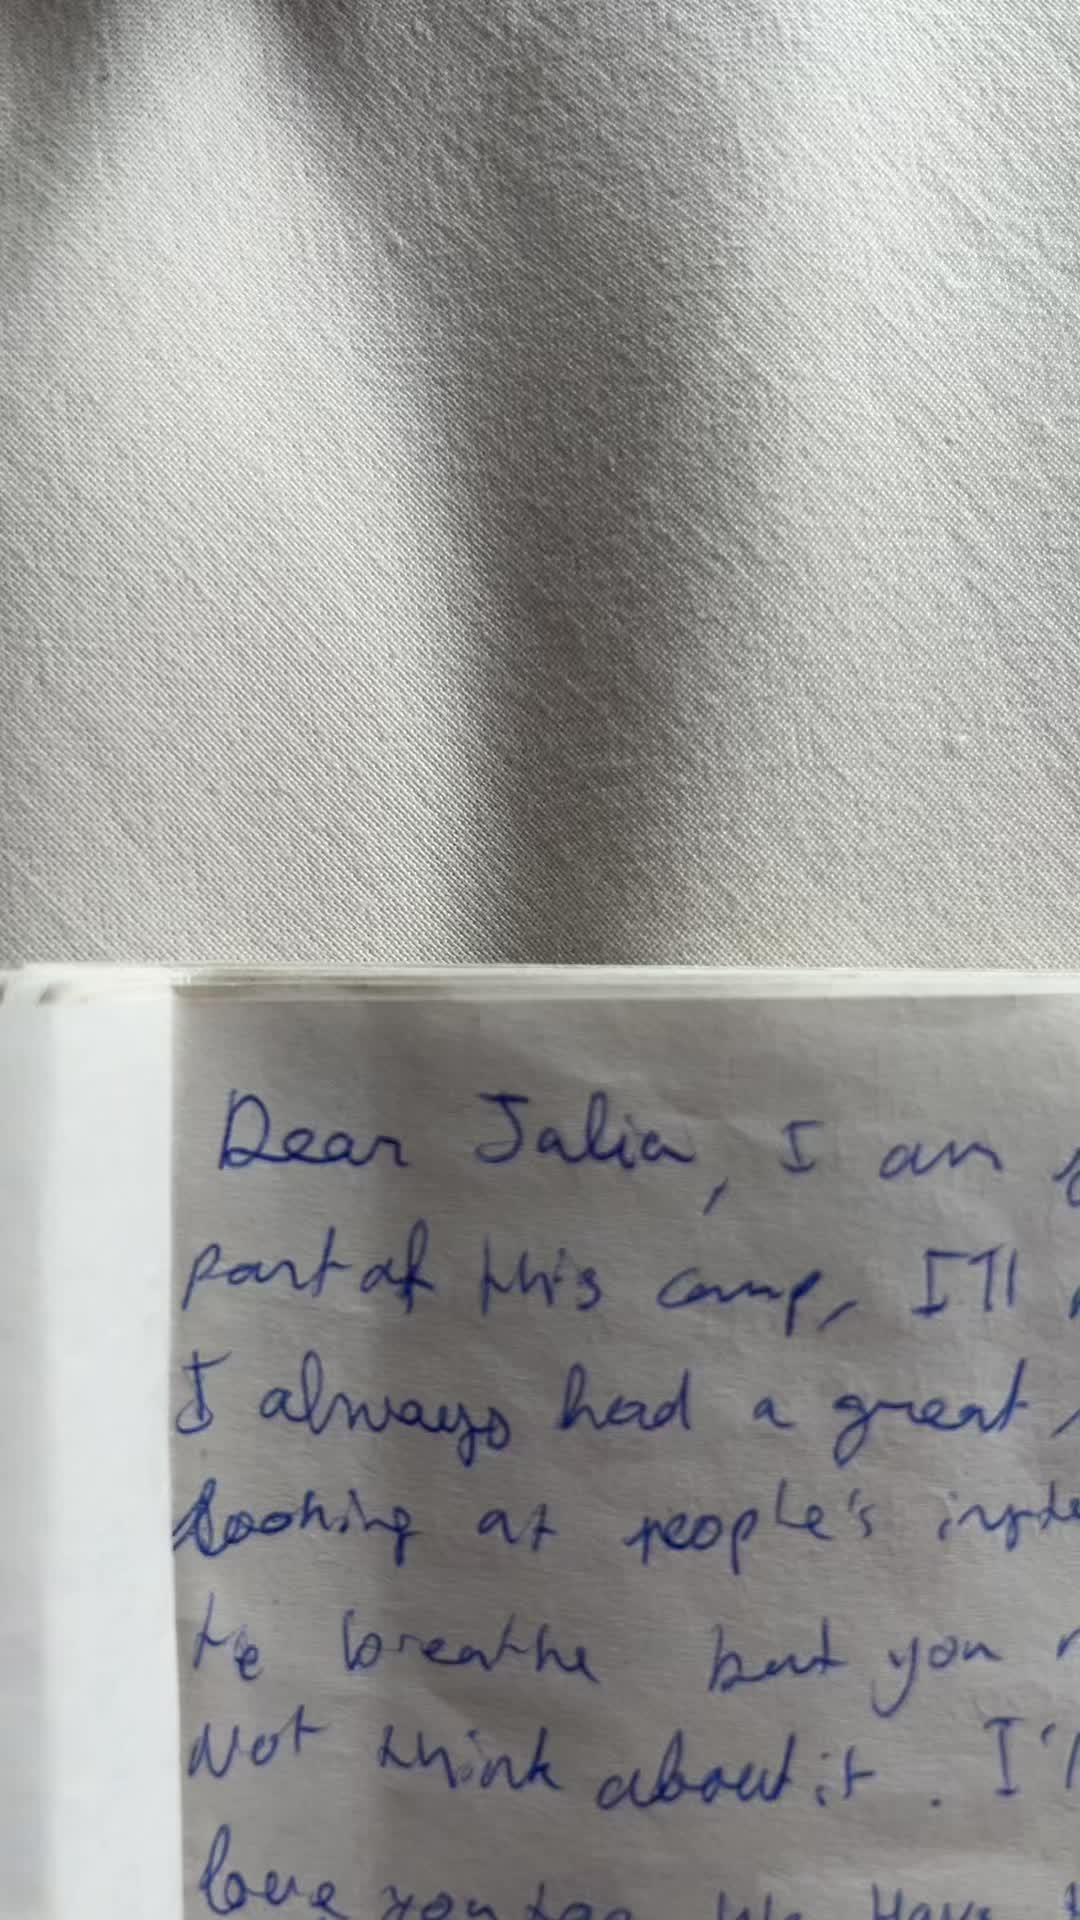 Dear Jalia, I am
part of this camp, I'll
I always had a great
looking at people's
to breathe but you
Not think about it. I'll
love you too We Have